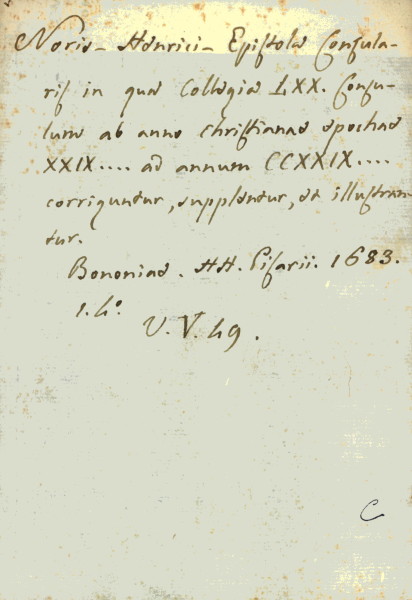 Noris- Henrici- Epistola Consula-
ris in qua Collegia LXX. Consu-
lum ab anno christianae epochae
XXIX.... ad annum CCXXIX....
corriguntur, supplentur, et illustran-
tur.
Bononiae. HH. Pisarii. 1683.
1. 4°.
V. V. 49.
C